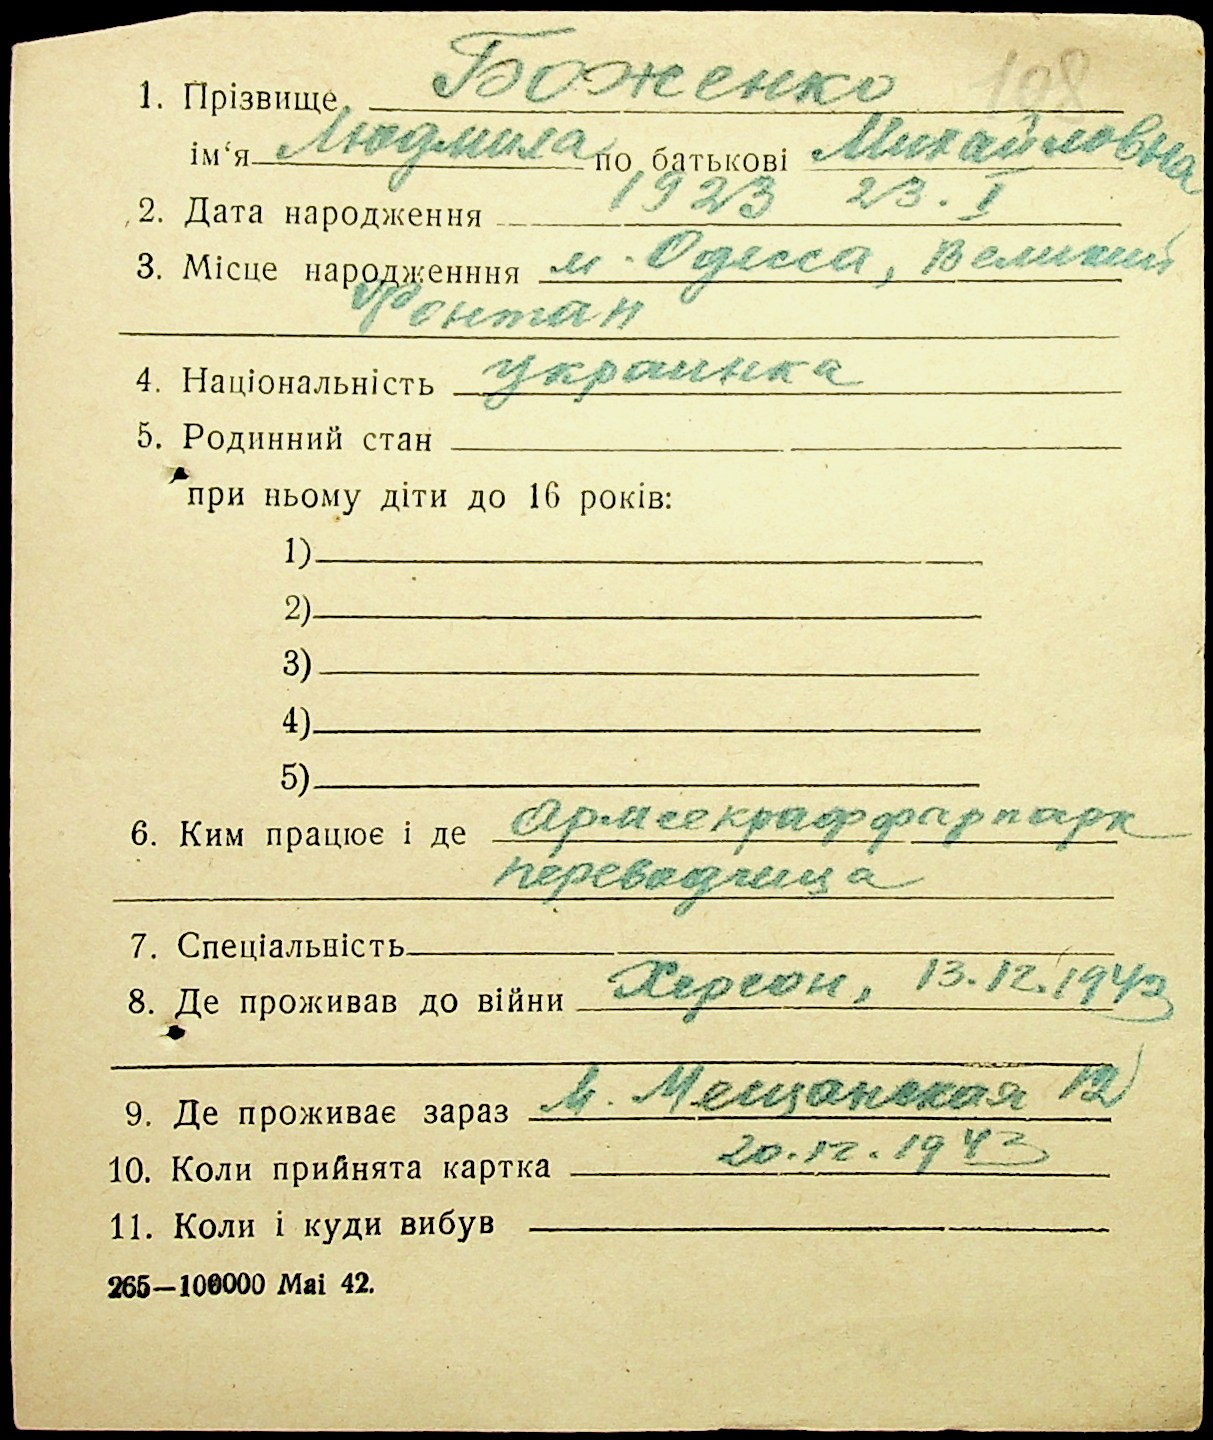 198
1. Прізвище Боженко
ім‘я Людмила по батькові Михайловна
2. Дата народження 1923 23. I
3. Місце народженння м. Одесса, Великий
Фонтан
4. Національність украинка
5. Родинний стан
при ньому діти до 16 років:
1)
2)
3)
4)
5)
6. Ким працює і де
переводчица
7. Спеціальність
8. Де проживав до війни Херсон, 13.12.1943
9. Де проживає зараз М. Мещанская 12
10. Коли прийнята картка 20.12.1943
11. Коли і куди вибув
265—100000 Mai 42.